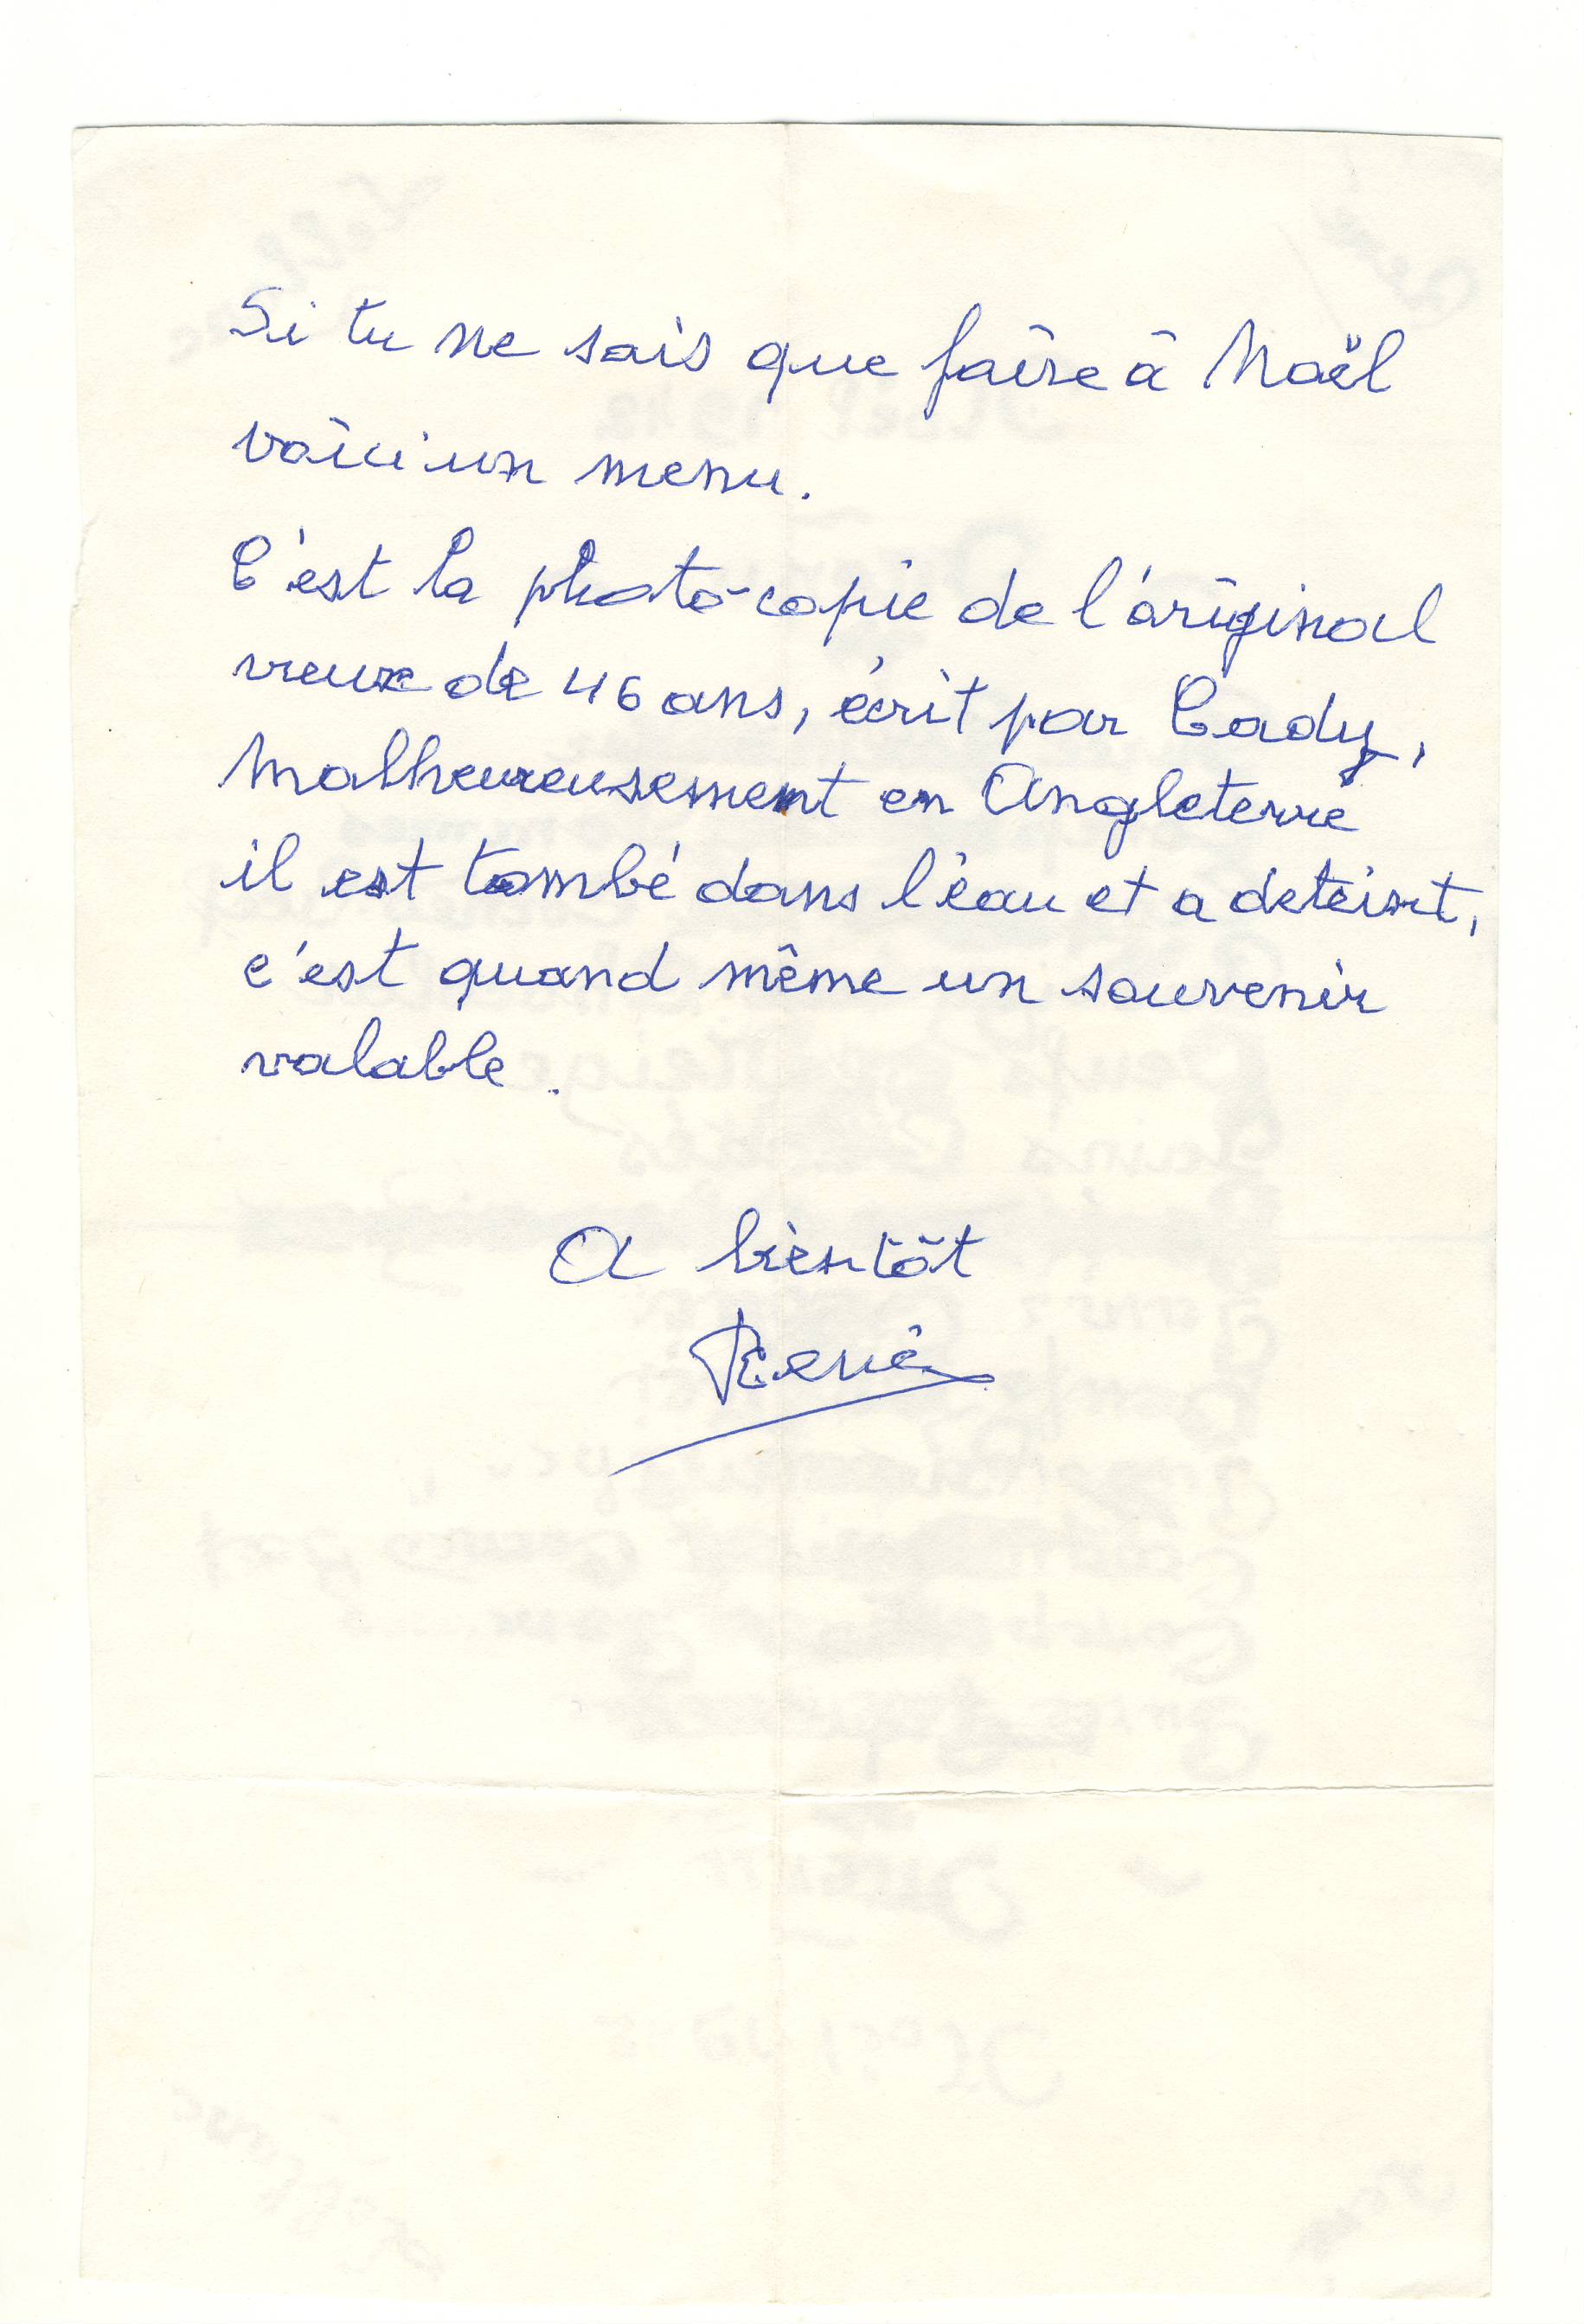 Si tu ne sais que faire à Noël
voici un menu.
C'est la photo-copie de l'original
vieux de 46 ans, écrit par Cady,
Malheureusement en Angleterre
il est tombé dans l'eau et a deteint,
c'est quand même un souvenir
valable.
A bientôt
René